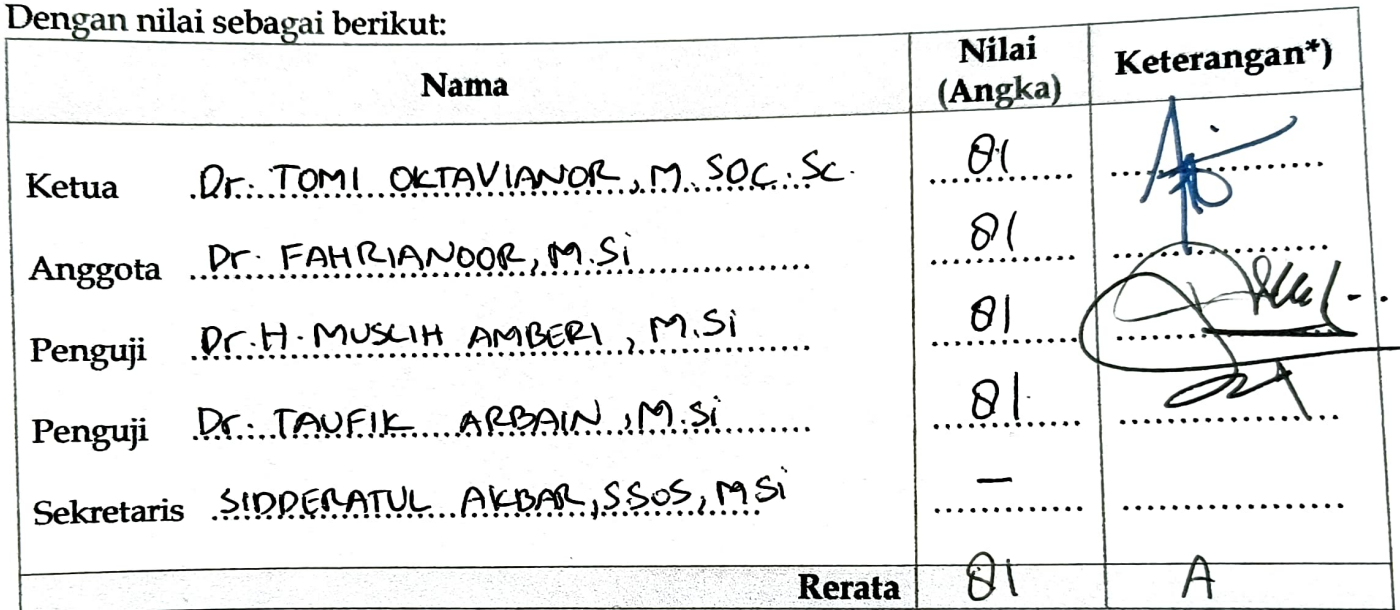 Dengan nilai sebagai berikut:
Nama Nilai (Angka) Keterangan*)
Ketua Dr. TOMI OKTAVIANOR, M. SOC. Sc. 81
Anggota Dr. FAHRIANOOR, M.Si 81
Penguji Dr. H. MUSLIH AMBERI, M.Si 81
Penguji Dr. TAUFIK ARBAIN, M.Si 81
Sekretaris SIDDERATUL AKBAR, SSOS, MSi —
Rerata 81 A